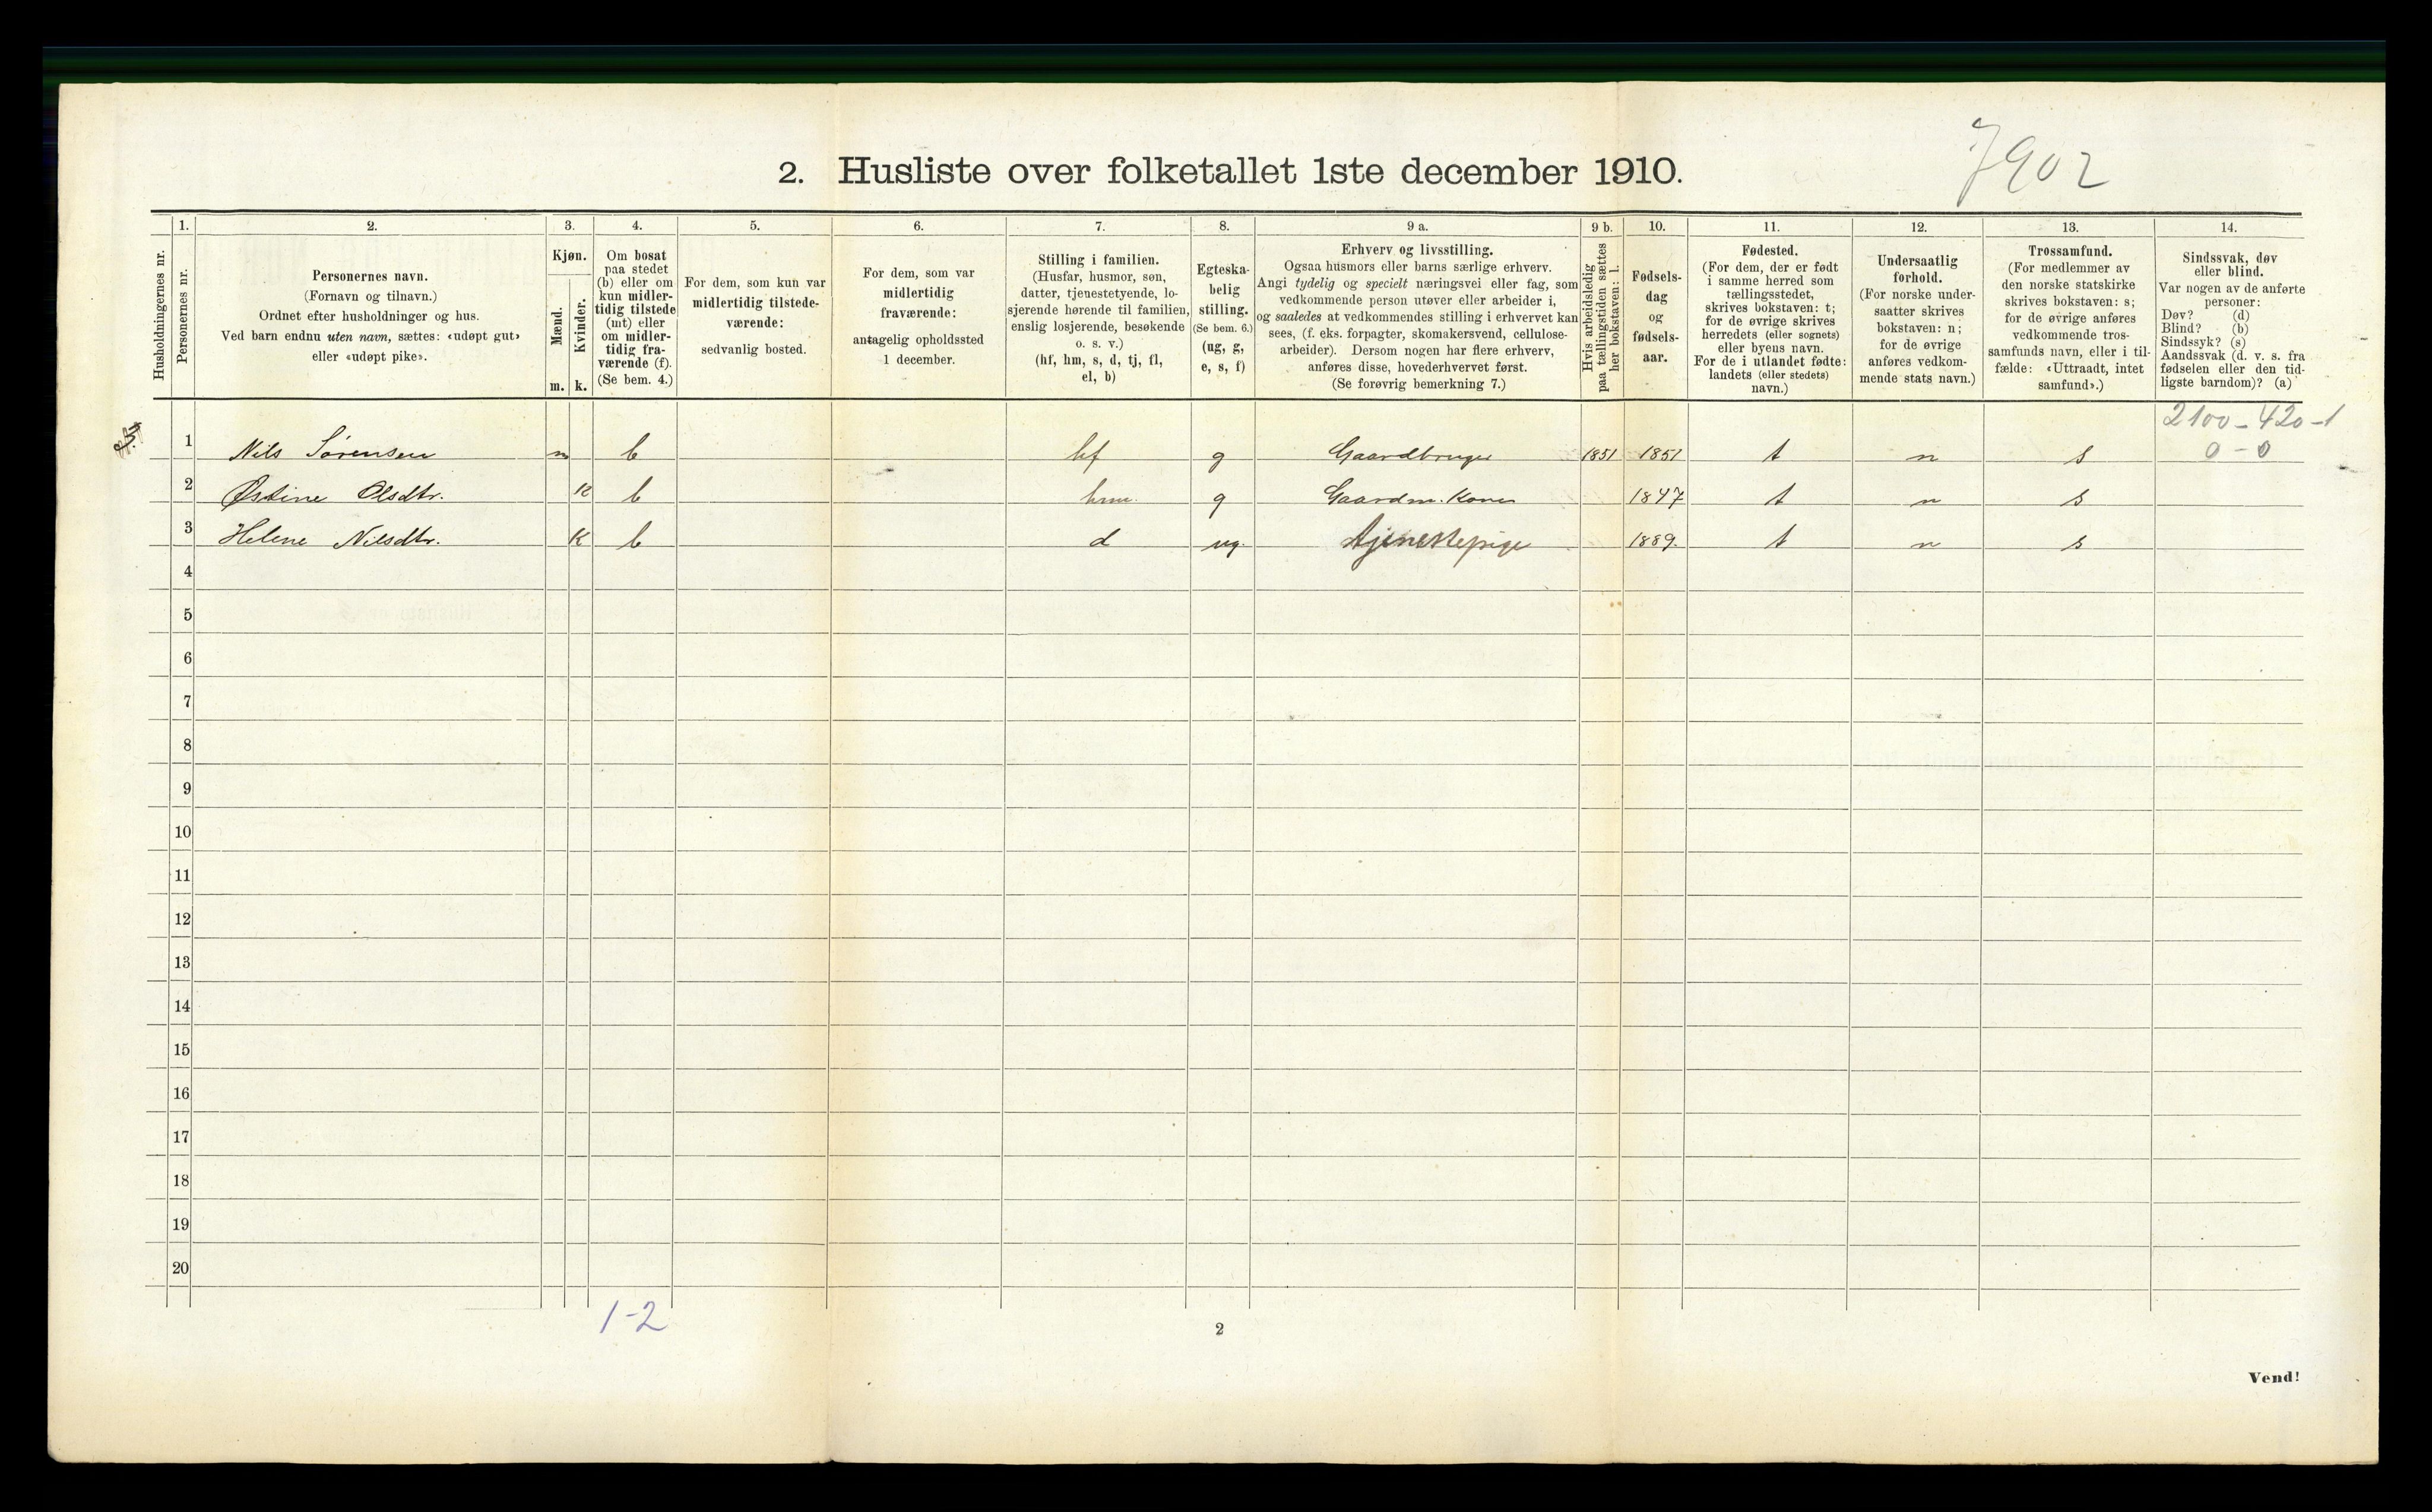 2. Husliste over folketallet 1ste december 1910.
7902
Husholdningernes nr.
1.
Personernes nr.
2.
Personernes navn.
(Fornavn og tilnavn.)
Ordnet efter husholdninger og hus.
Ved barn endnu uten navn, sættes: «udøpt gut»
eller «udøpt pike».
3.
Kjøn.
Mænd.
Kvinder.
m. k.
4.
Om bosat
paa stedet
(b) eller om
kun midler-
tidig tilstede
(mt) eller
om midler-
tidig fra-
værende (f).
(Se bem. 4.)
5.
For dem, som kun var
midlertidig tilstede-
værende:
sedvanlig bosted.
6.
For dem, som var
midlertidig
fraværende:
antagelig opholdssted
1 december.
7.
Stilling i familien.
(Husfar, husmor, søn,
datter, tjenestetyende, lo-
sjerende hørende til familien,
enslig losjerende, besøkende
o. s. v.)
(hf, hm, s, d, tj, fl,
el, b)
8.
Egteska-
belig
stilling.
(Se bem. 6.)
(ug, g,
e, s, f)
9 a.
Erhverv og livsstilling.
Ogsaa husmors eller barns særlige erhverv.
Angi tydelig og specielt næringsvei eller fag, som
vedkommende person utøver eller arbeider i,
og saaledes at vedkommendes stilling i erhvervet kan
sees, (f. eks. forpagter, skomakersvend, cellulose-
arbeider). Dersom nogen har flere erhverv,
anføres disse, hovederhvervet først.
(Se forøvrig bemerkning 7.)
9 b.
Hvis arbeidsledig
paa tællingstiden sættes
her bokstaven: l.
10.
Fødsels-
dag
og
fødsels-
aar.
11.
Fødested.
(For dem, der er født
i samme herred som
tællingsstedet,
skrives bokstaven: t;
for de øvrige skrives
herredets (eller sognets)
eller byens navn.
For de i utlandet fødte:
landets (eller stedets)
navn.)
12.
Undersaatlig
forhold.
(For norske under-
saatter skrives
bokstaven: n;
for de øvrige
anføres vedkom-
mende stats navn.)
13.
Trossamfund.
(For medlemmer av
den norske statskirke
skrives bokstaven: s;
for de øvrige anføres
vedkommende tros-
samfunds navn, eller i til-
fælde: «Uttraadt, intet
samfund».)
14.
Sindssvak, døv
eller blind.
Var nogen av de anførte
personer:
Døv? (d)
Blind? (b)
Sindssyk? (s)
Aandssvak (d. v. s. fra
fødselen eller den tid-
ligste barndom)? (a)
2100-420-1
0-0
1 Nils Sørensen m b hf g Gaardbruger 1851 1851 t n s
2 Østine Olsdtr. K b hm. g Gaardm. Kone 1847 t n s
3 Helene Nilsdtr. K b d ug. tjenestepige 1889. t n s
4
5
6
7
8
9
10
11
12
13
14
15
16
17
18
19
20
1-2
2
Vend!